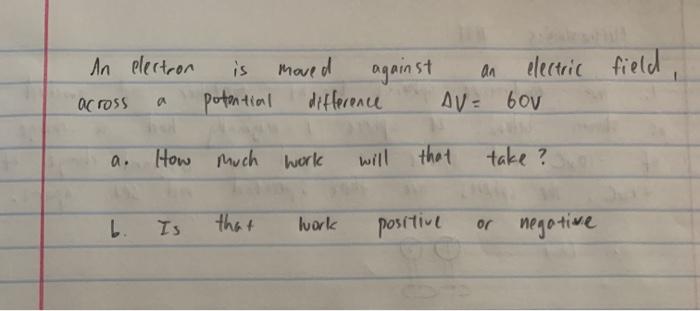 An electron is moved against an electric field,
across a potential difference ΔV = 60V
a. How much work will that take?
b. Is that work positive or negative